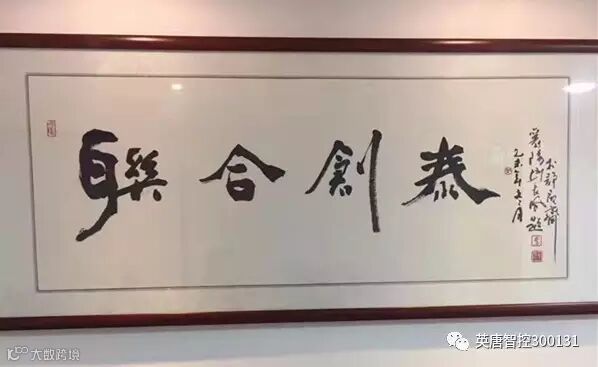 聯合創泰
襄陽 題
乙未年 月
英唐智控300131
大数跨境